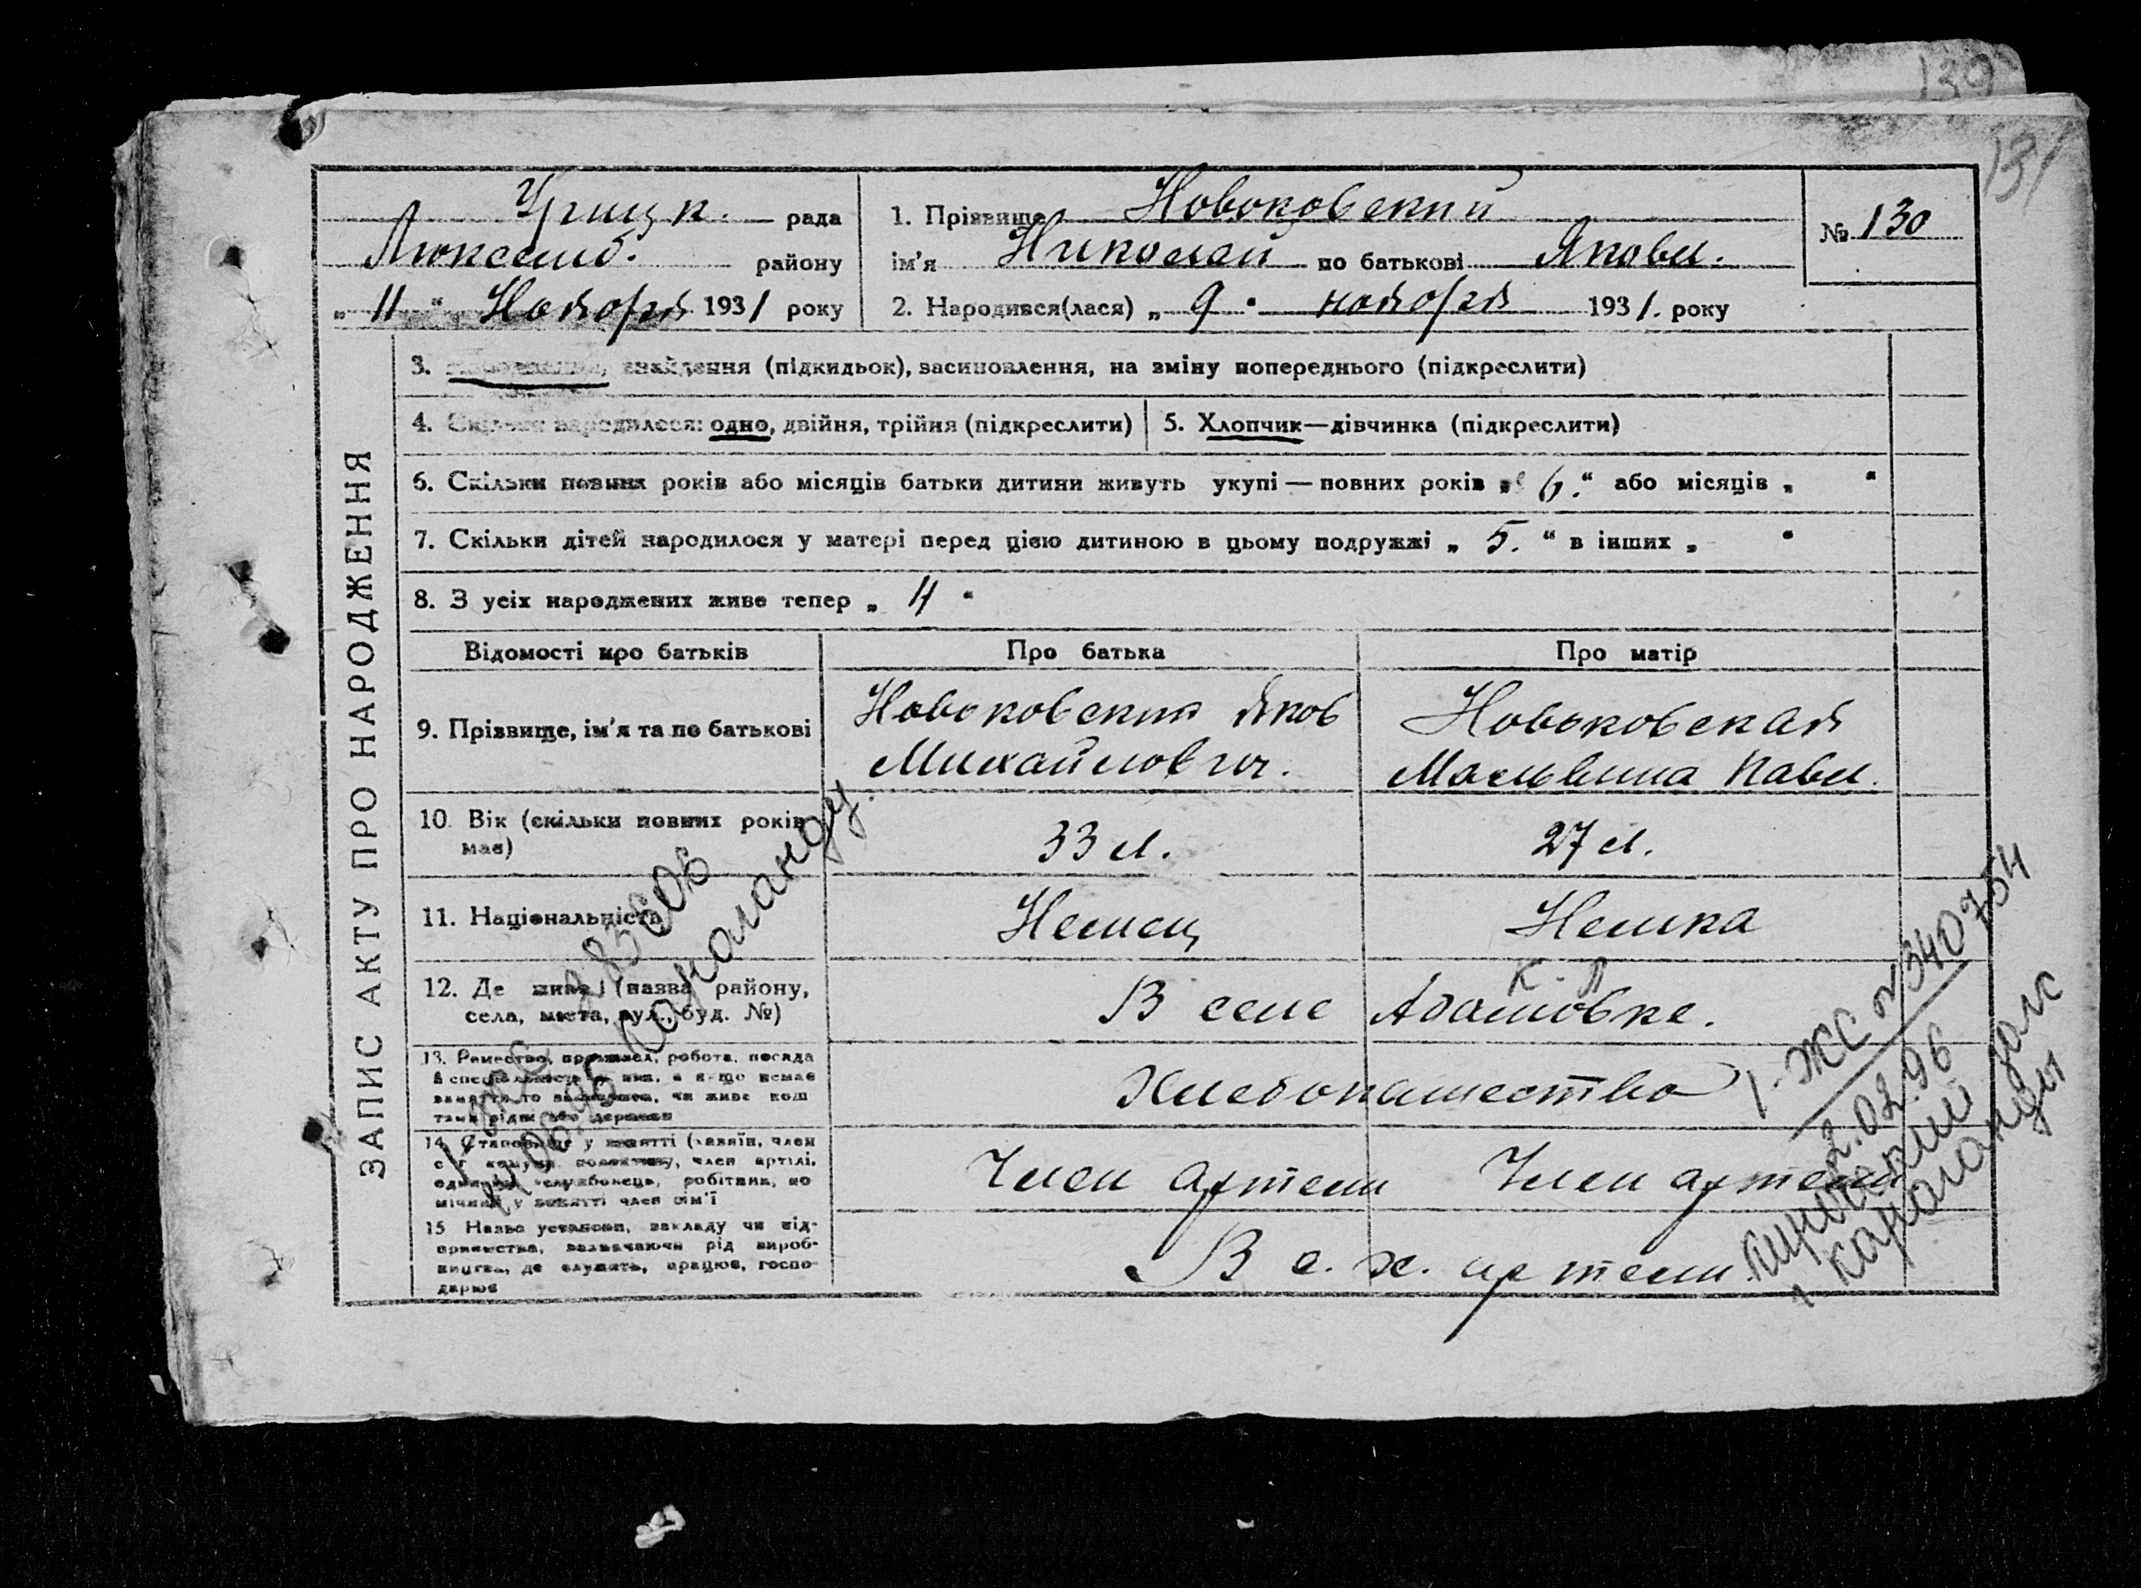 130
131
Урицк. рада
Люксемб. району
„ 11 “ Ноября 1931 року
1. Прізвище Новоковский
ім'я Николай по батькові Яковл.
2. Народився(лася) „ 9 “ ноября 1931. року
№ 130
ЗАПИС АКТУ ПРО НАРОДЖЕННЯ
3. знайдення (підкидьок), засиновлення, на зміну попереднього (підкреслити)
4. Скільки народилося: одно, двійня, трійня (підкреслити)
5. Хлопчик—дівчинка (підкреслити)
6. Скільки повних років або місяців батьки дитини живуть укупі — повних років „ 6. “ або місяців „ “
7. Скільки дітей народилося у матері перед цією дитиною в цьому подружжі „ 5. “ в інших „ “
8. З усіх народжених живе тепер „ 4 “
Відомості про батьків
Про батька
Про матір
9. Прізвище, ім'я та по батькові
Новоковский Яков
Михайлович.
Новоковская
Мальвина Павл.
10. Вік (скільки повних років
має)
33 л.
27 л.
11. Національність
Немец
Немка
12. Де живе (назва району,
села, міста, вул., буд. №)
К Л
В селе Адамовке.
13. Ремество, промисел, робота, посада
й спеціальність
Хлебопашество
14. Становище у занятті (хазяїн, член
член артілі,
службовець, робітник, по
мічний у занятті член сім'ї
Член артели
Член артели
15. Назва установи, закладу чи під-
приємства, зазначаючи рід вироб-
ництва, де служить, працює, госпо-
дарює
В с. х. артели.
Караганду
1. ЖС № 340754
2.02.96
загс
г Караганды